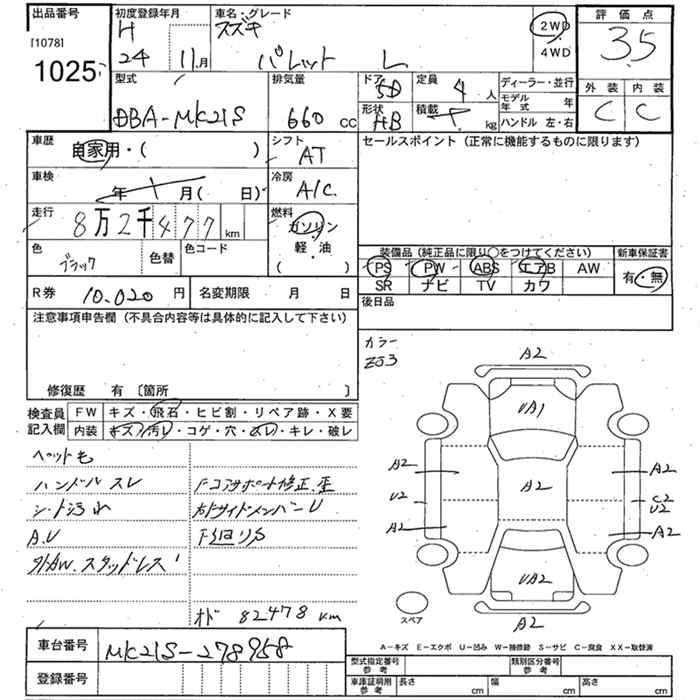 出品番号
[1078]
1025
初度登録年月
H
24 11月
車名・グレード
スズキ
パレット L
2WD
4WD
評価点
3.5
外装 内装
C C
型式
DBA-MK21S
排気量
660 cc
ドア
5D
形状
HB
定員
4 人
積載
kg
ディーラー・並行
モデル年式 年
ハンドル 左・右
車歴
自家用・( )
シフト
AT
セールスポイント(正常に機能するものに限ります)
車検
年 月( 日)
冷房
A/C
走行
8万2千477 km
燃料
ガソリン
軽・油
( )
色
ブラック
色替
色コード
装備品(純正品に限り○をつけてください)
PS PW ABS エアB AW
SR ナビ TV カワ
新車保証書
有・無
R券 10.020 円
名変期限 月 日
後日品
注意事項申告欄(不具合内容等は具体的に記入して下さい)
修復歴 有〔箇所 〕
カラー
ZJ3
検査員
記入欄
FW キズ・飛石・ヒビ割・リペア跡・X要
内装 キズ・汚レ・コゲ・穴・スレ・キレ・破レ
ペットも
ハンドルスレ
シート汚れ
A.U
外AW.スタッドレス
Fコアサポート修正.歪
右FサイドメンバーU
オド 82478 km
A2
UA1
A2
A2
U2
A2
A2
C2
U2
A2
UA2
A2
スペア
A-キズ E-エクボ U-凹み W-補修跡 S-サビ C-腐食 XX-取替済
車台番号 MK21S-278958
登録番号
型式指定番号
参考
類別区分番号
参考
車庫証明用
参考
長さ cm
幅 cm
高さ cm